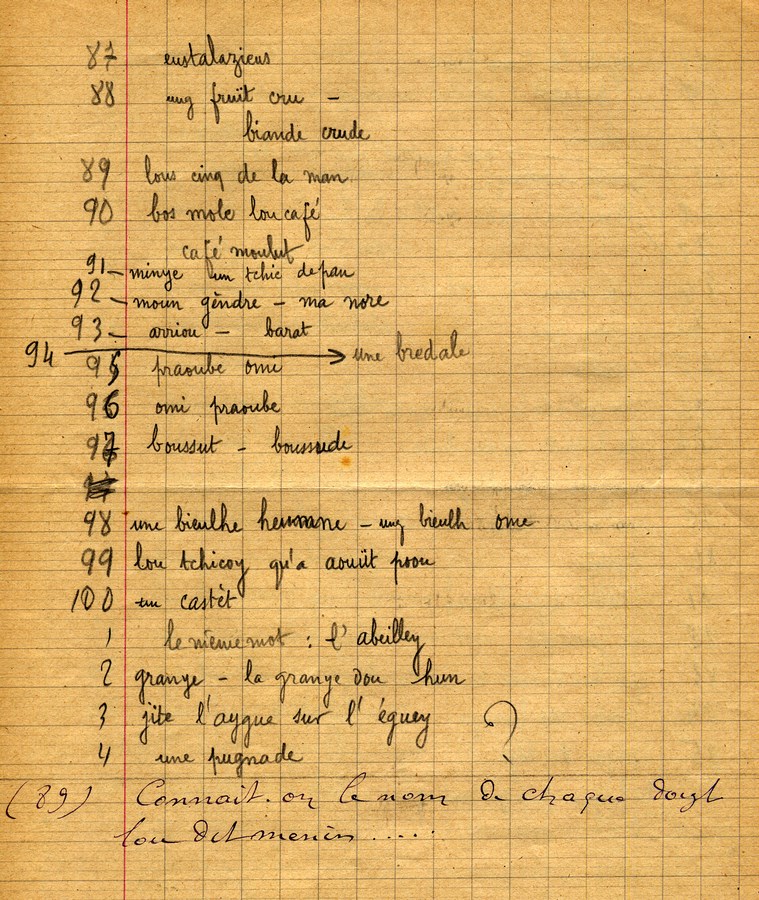 87 eustalaziens
88 ung fruït cru –
biande crude
89 lous cinq de la man
90 bos mole lou café
café moulut
91 – minye un tchic de pan
92 – moun gèndre – ma nore
93 – arriou – barat
94 → une bredale
95 praoube omi
96 omi praoube
97 boussut – boussude
98 une bieulhe hemne – ung bieulh ome
99 lou tchicoy qu'a aouüt poou
100 un castèt
1 le même mot : l'abeilley
2 granye – la granye dou hun
3 jite l'aygue sur l'éguey ?
4 une pugnade
(89) Connait-on le nom de chaque doigt
lou dit menin .....